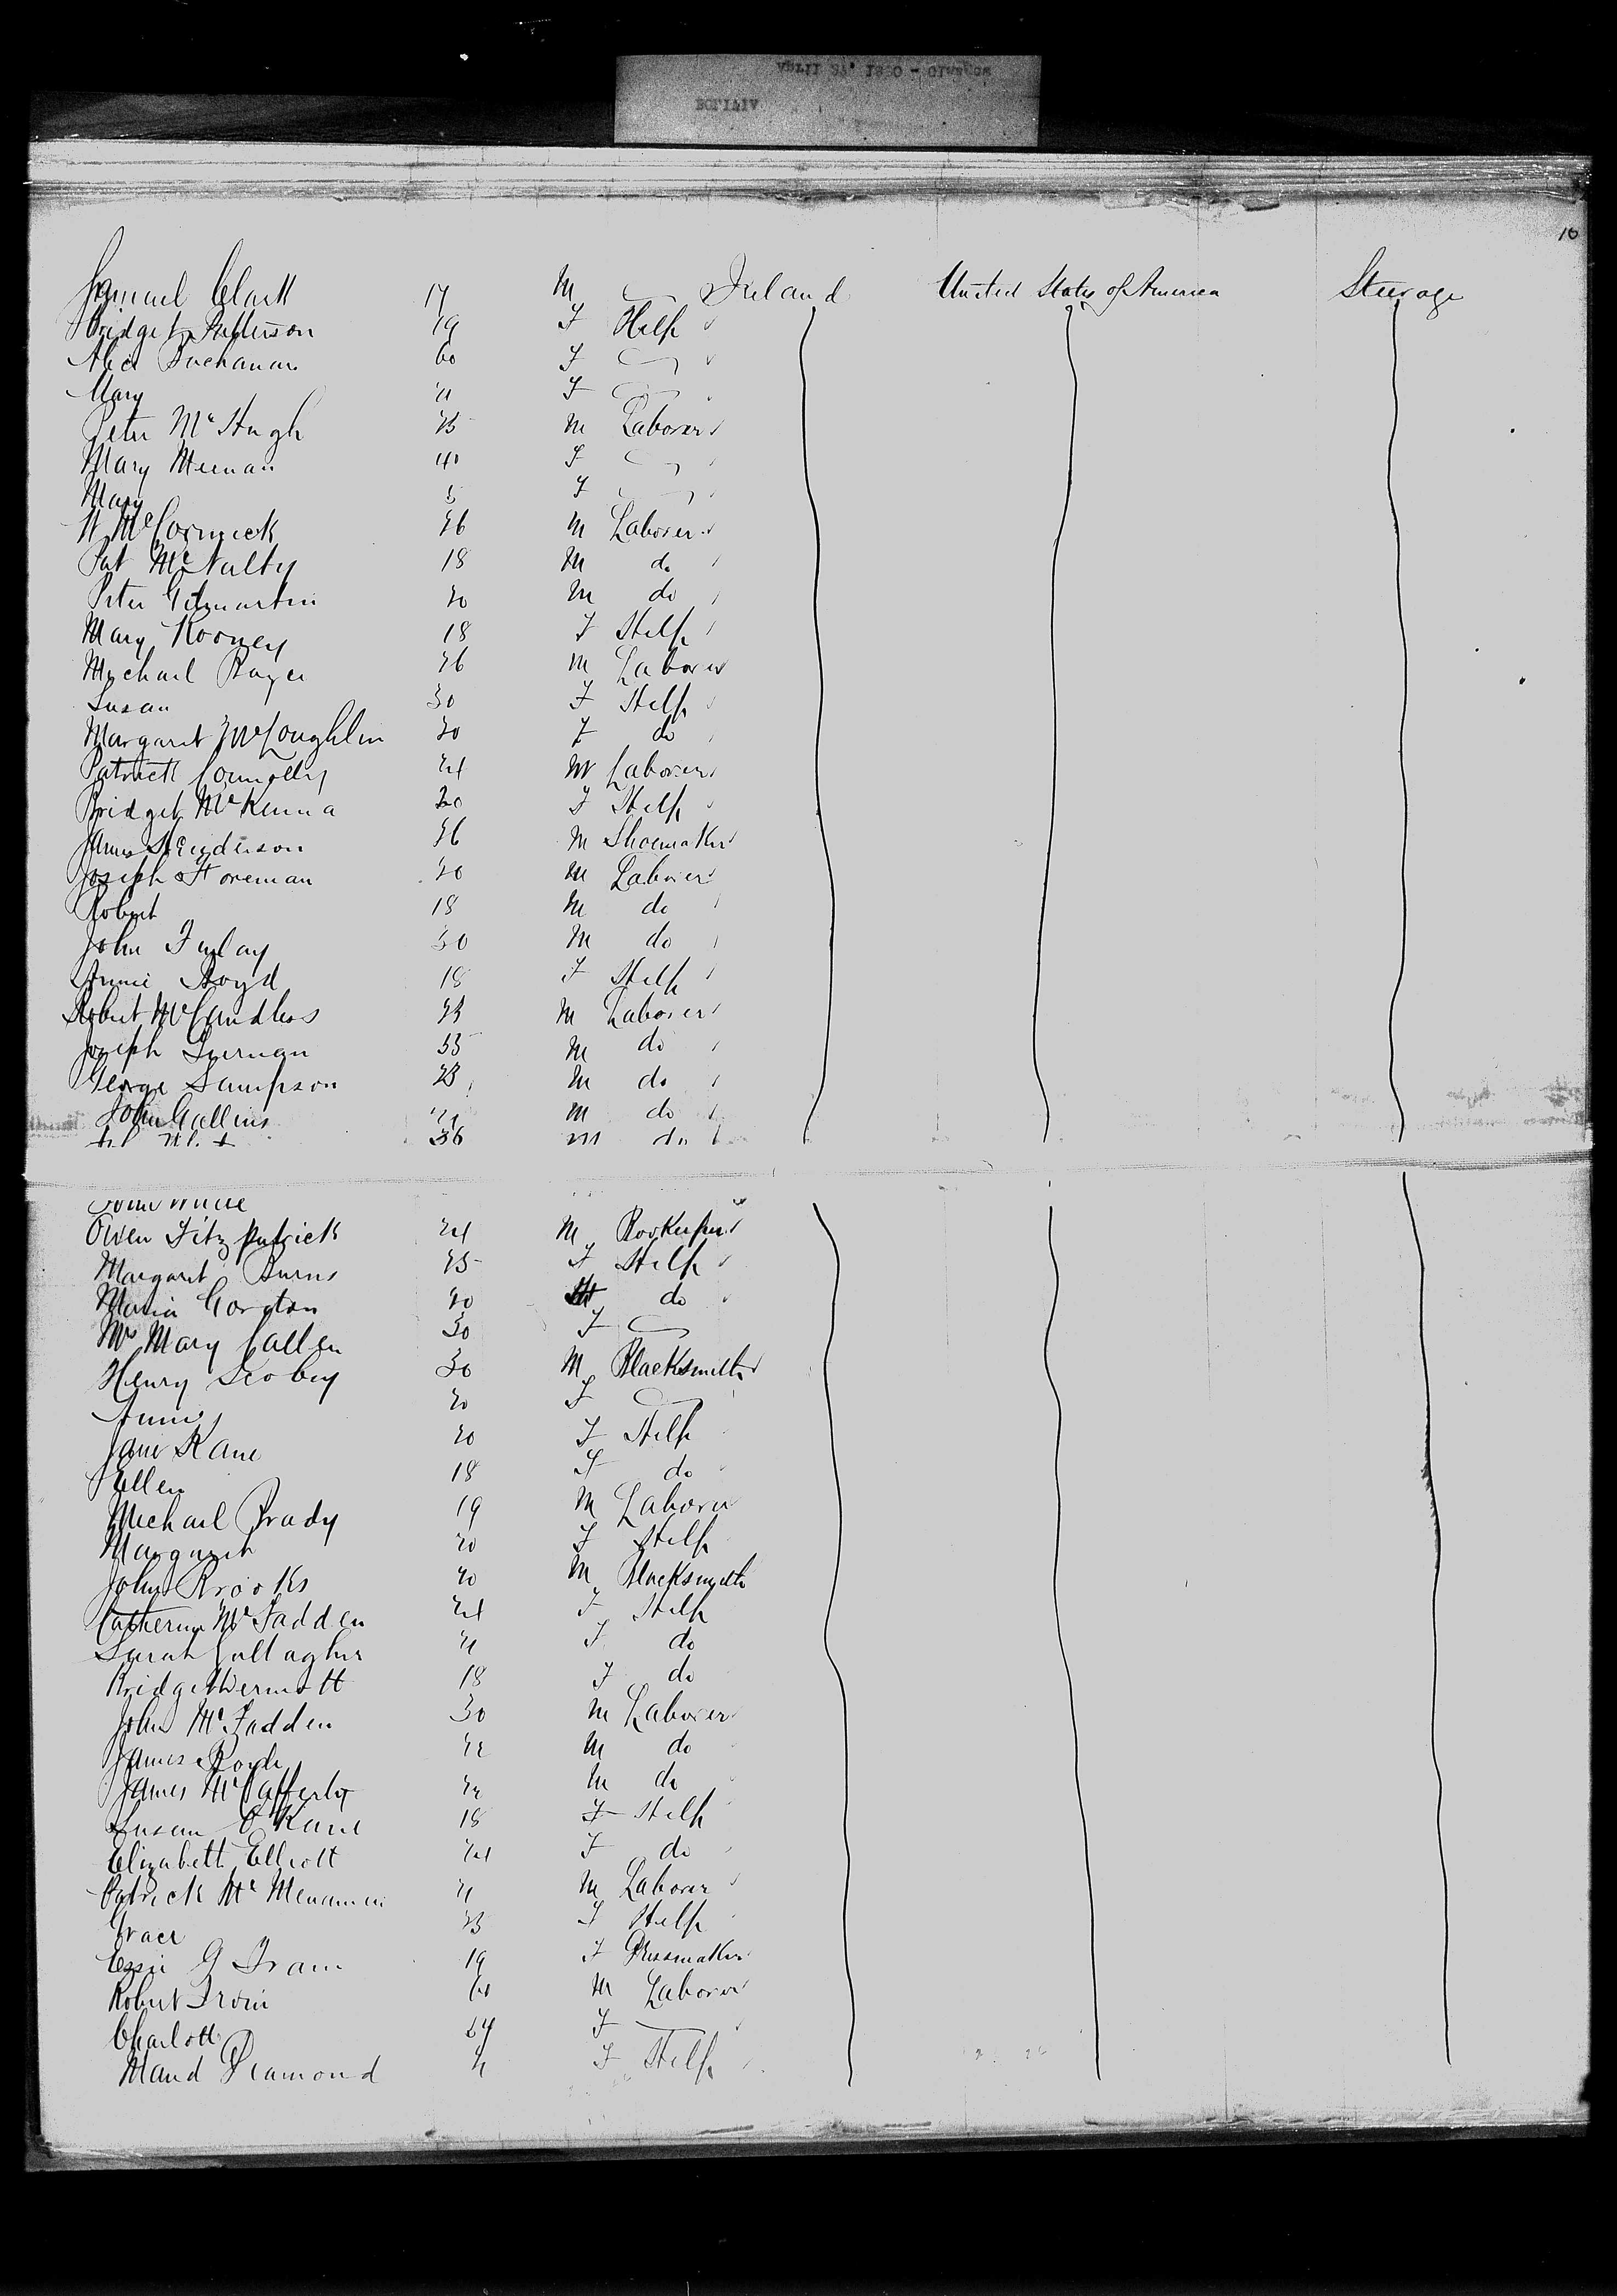 10
Samuel Clark 17 M Ireland United States of America Steerage
Bridget Patterson 19 F Help
Alice Buchanan 60 F
Mary 21 F
Peter McHugh 25 M Laborer
Mary Meenan 40 F
Mary 5 F
W McCormick 26 M Laborer
Pat McNulty 18 M do
Peter Gilmartin 20 M do
Mary Rooney 18 F Help
Mychael 26 M Laborer
Susan 30 F Help
Margaret McLoughlin 20 F do
Patrick Connolly 24 M Laborer
Bridget McKenna 20 F Help
James Henderson 26 M Shoemaker
Joseph Foreman 20 M Laborer
Robert 18 M do
John Finlay 30 M do
Annie Boyd 18 F Help
Robert McCandless 23 M Laborer
Joseph 35 M do
George Sampson 23 M do
John Gallins M do
36 M do
Owen Fitzpatrick 24 M Bookeeper
Margaret Burns 25 F Help
Maria 20 do
Mrs Mary Callen 30 F
Henry Scobey 30 M Blacksmith
Annie 20 F
Jane Kane 20 F Help
Ellen 18 F do
Michael Brady 19 M Laborer
Margaret 20 F Help
John Brooks 20 M Blacksmith
Catherine McFadden 24 F Help
Sarah Gallagher 21 F do
Bridget Dermott 18 F do
John McFadden 30 M Laborer
James Boyle 22 M do
James McCafferty M do
Susan O'Kane 18 F Help
Elizabeth Elliott 24 F do
Patrick McMenamin 21 M Laborer
Grace 23 F Help
Essie G 19 F Dressmaker
Robert Irvin 60 M Laborer
Charlotte 54 F
Maud Diamond 21 F Help